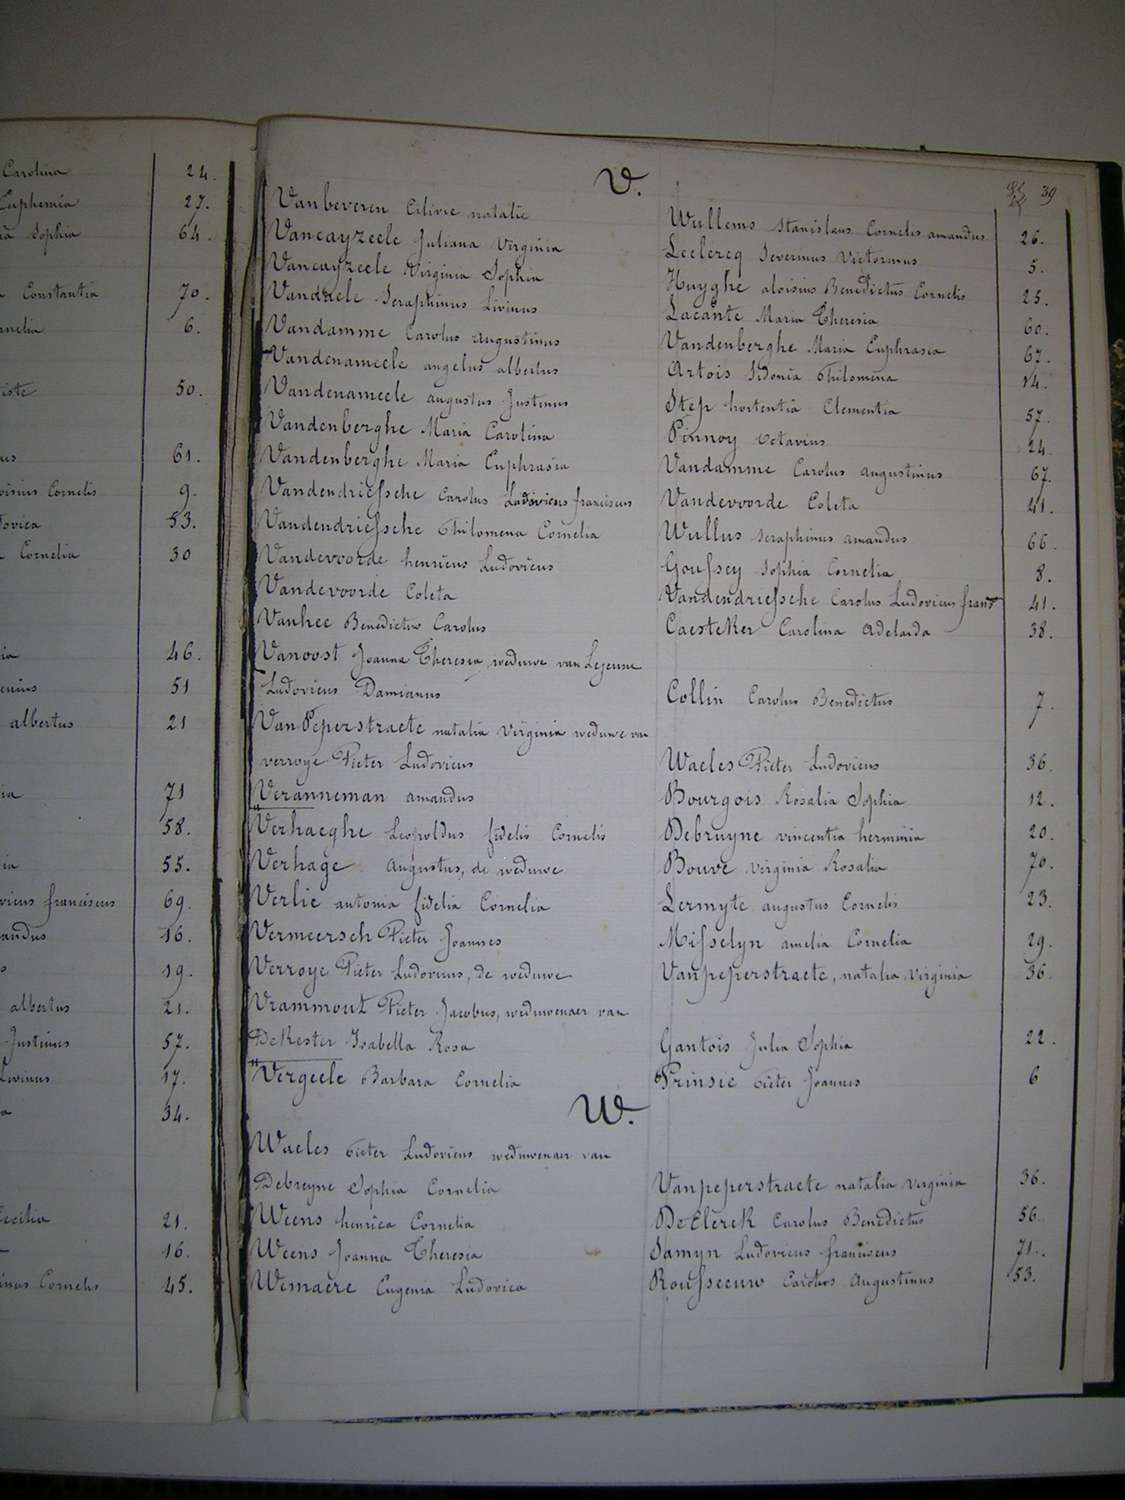 Carolina 24.
Euphemia 27.
Sophia 64.
Constantia 70.
6.
50.
61.
Cornelis 9.
53.
Cornelia 30
46.
51
albertus 21
71
58.
55.
franciscus 69.
16.
19.
albertus 21.
Justinus 57.
Livinus 17.
34.
Cecilia 21.
16.
Cornelis 45.
39
V.
Vanbeveren natalie Wullems Stanislaus Cornelis amandus 26.
Vancayzeele Juliana Virginia Leclercq Severinus Victorinus 5.
Vancayzeele Virginia Sophia Huyghe aloisius Benedictus Cornelis 25.
Vandaele Seraphinus Livinus Lacante Maria Theresia 60.
Vandamme Carolus augustinus Vandenberghe Maria Euphrasia 67.
Vandenameele angelus albertus Artois Sidonia Philomena 14.
Vandenameele augustus Justinus Step hortentia Clementia 57.
Vandenberghe Maria Carolina Pinnoy Octavius 24.
Vandenberghe Maria Euphrasia Vandamme Carolus augustinus 67.
Vandendriessche Carolus Ludovicus franciscus Vandevoorde Coleta 41.
Vandendriessche Philomena Cornelia Wullus Seraphinus amandus 66.
Vandevoorde henricus Ludovicus Goussey Sophia Cornelia 8.
Vandevoorde Coleta Vandendriessche Carolus Ludovicus frans 41.
Vanhee Benedictus Carolus Caesteker Carolina adelaida 38.
Vanoost Joanna Theresia, weduwe van Lejeune
Ludovicus Damianus Collin Carolus Benedictus 7.
VanPeperstraete natalia Virginia weduwe van
verroye Pieter Ludovicus Waeles Pieter Ludovicus 36.
Veranneman amandus Bourgois Rosalia Sophia 12.
Verhaeghe Leopoldus fidelis Cornelis Debruyne vincentia herminia 20.
Verhage augustus, de weduwe Bouve Virginia Rosalia 70.
Verlie antonia fidelia Cornelia Lermyte augustus Cornelis 23.
Vermeersch Pieter Joannes Misselyn amelia Cornelia 29.
Verroye Pieter Ludovicus, de weduwe Vanpeperstraete, natalia Virginia 36.
Vrammout Pieter Jacobus, weduwenaer van
DeKester Isabella Rosa Gantois Julia Sophia 22.
Vergeele Barbara Cornelia Prinsie Pieter Joannes 6
W.
Waeles Pieter Ludovicus weduwenaer van
Debreyne Sophia Cornelia Vanpeperstraete natalia Virginia 36.
Weens henrica Cornelia DeClerck Carolus Benedictus 56.
Weens Joanna Theresia Samyn Ludovicus franciscus 71.
Wemaere Eugenia Ludovica Rousseeuw Carolus Augustinus 53.